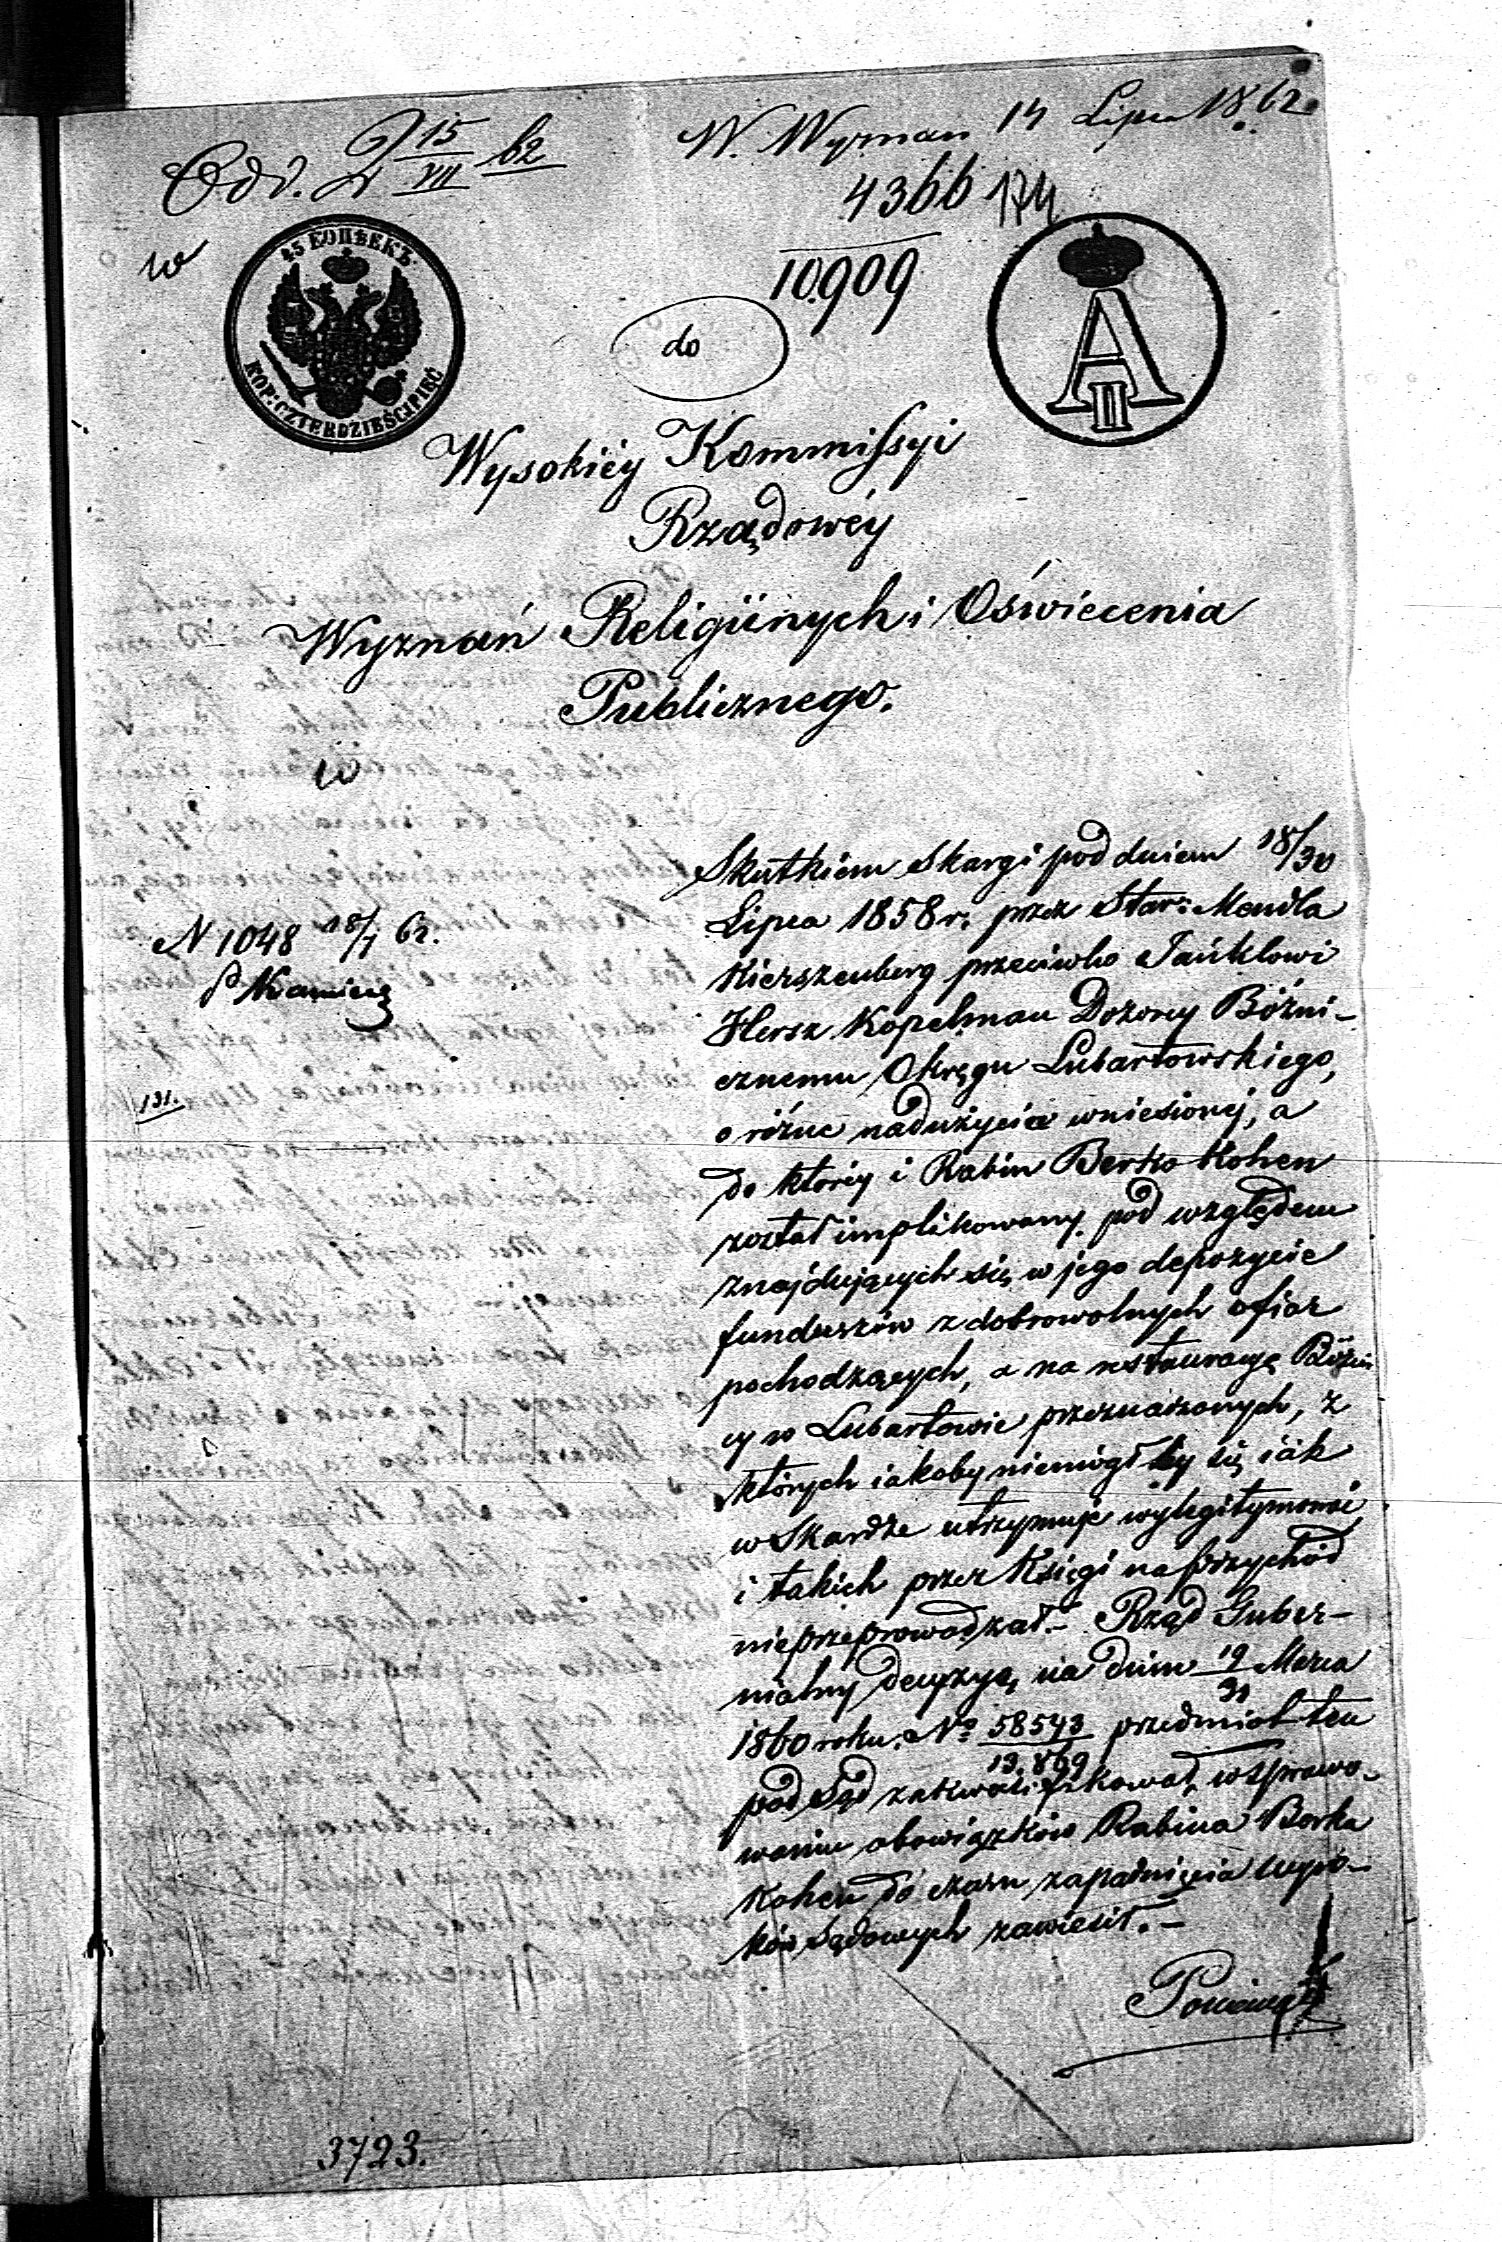 Odd. 2 15/VII 62
W. Wyznan 14 Lipca 1862
4366 174
10909
w
45 КОПѢЕКЪ
КОР: CZTERDZIEŚCI PIĘĆ
A II
do
Wysokiéy Kommissyi
Rządowéy
Wyznań Religiinych i Oświecenia
Publicznego.
w
N 1048 18/7 62.
131.
Skutkiem Skargi pod dniem 18/30
Lipca 1858 r. przez Star: Mendla
Kierszenberg przeciwko Jańklowi
Hersz Kopelman Dozorcy Bóżni-
cznemu Okręgu Lubartowskiego,
o różne nadużycia wniesionej, a
do któréy i Rabin Berko Kohen
został implikowany pod względem
znajdujących się w jego depozycie
funduszów z dobrowolnych ofiar
pochodzących, a na restauracyę Bóżni
cy w Lubartowie przeznaczonych, z
których iakoby niemógł by się iak
w Skardze utrzymuje wylegitymować
i takich przez Księgi na przychód
nieprzeprowadzał.- Rząd Guber-
nialny decyzyą na dniu 19/31 Marca
1860 roku. No 58543/13.869 przedmiot ten
pod Sąd zakwalifikował, w sprawo-
waniu obowiązków Rabina Berka
Kohen do czasu zapadnięcia wyro-
ków Sądowych zawiesił.-
3723.